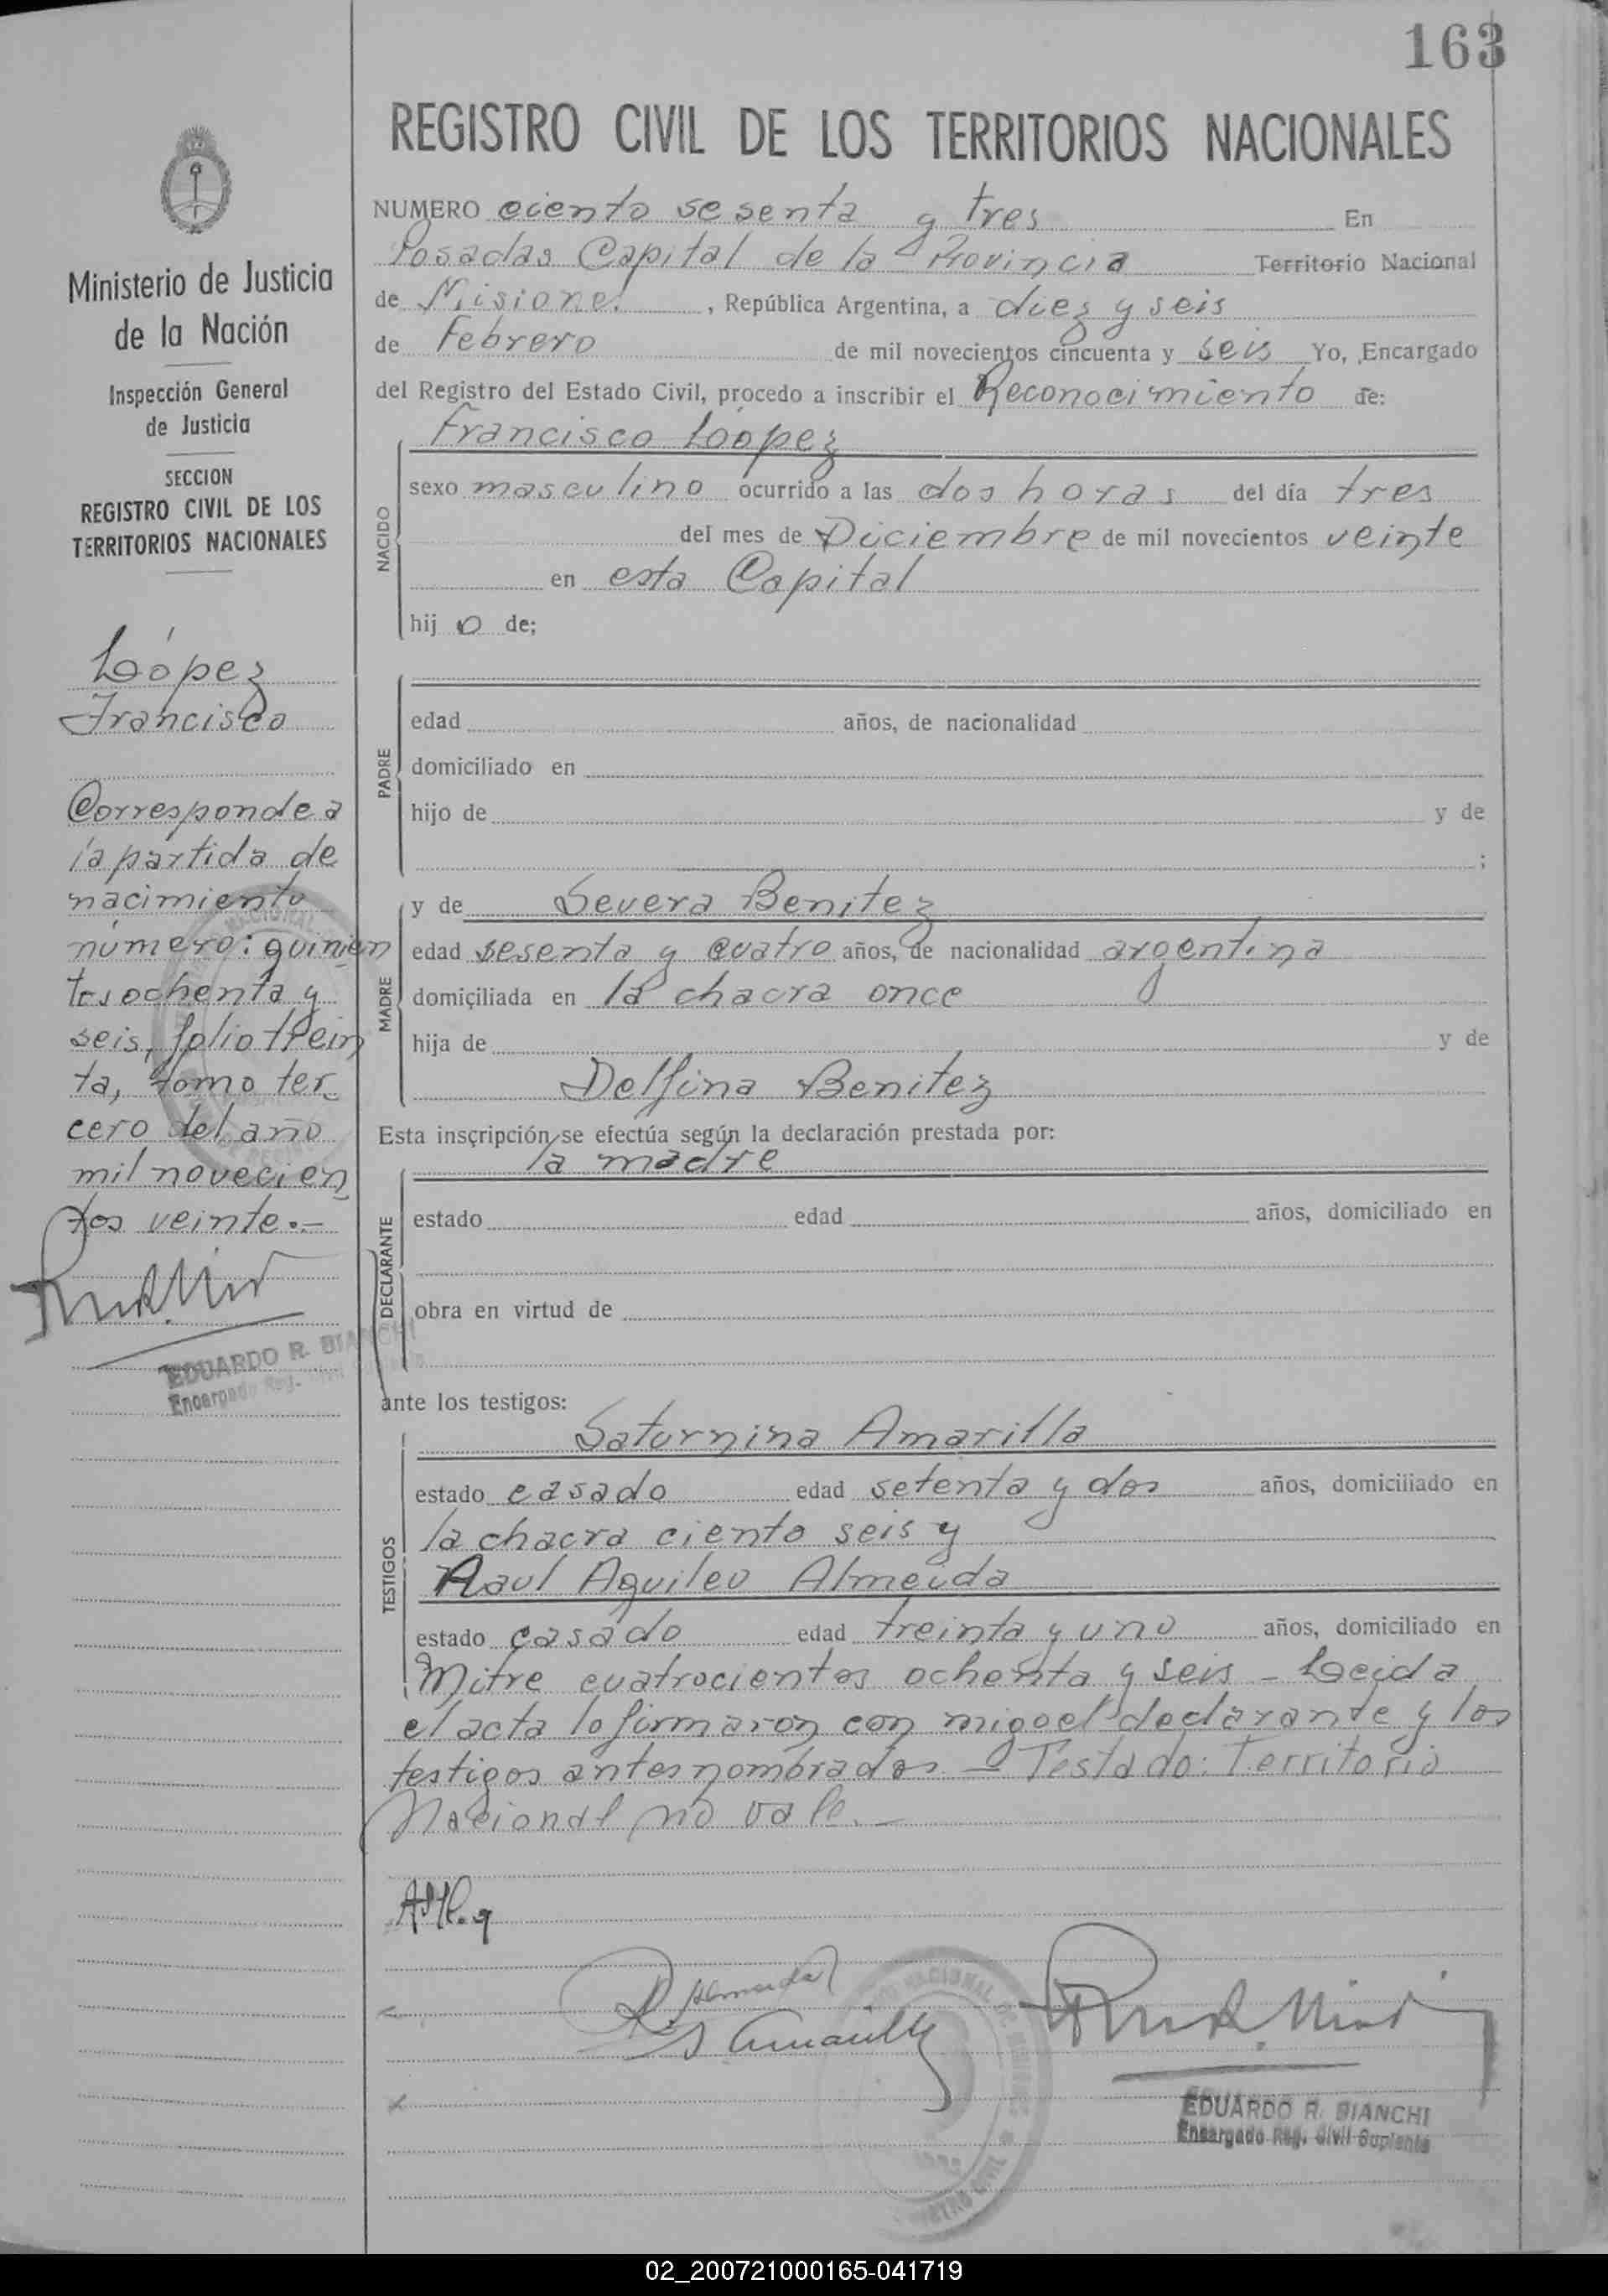 163
REGISTRO CIVIL DE LOS TERRITORIOS NACIONALES
Ministerio de Justicia
de la Nación
Inspección General
de Justicia
SECCION
REGISTRO CIVIL DE LOS
TERRITORIOS NACIONALES
López
Francisco
Corresponde a
la partida de
nacimiento
número: quinien
tos ochenta y
seis, folio trein
ta, tomo ter_
cero del año
mil novecien
tos veinte.–
EDUARDO R. BIANCHI
Encargado Reg. Civil
NUMERO ciento sesenta y tres En
Posadas Capital de la Provincia Territorio Nacional
de Misiones, República Argentina, a diez y seis
de Febrero de mil novecientos cincuenta y seis Yo, Encargado
del Registro del Estado Civil, procedo a inscribir el Reconocimiento de:
Francisco Loópez
NACIDO
sexo masculino ocurrido a las dos horas del día tres
del mes de Diciembre de mil novecientos veinte
en esta Capital
hijo de;
PADRE
edad años, de nacionalidad
domiciliado en
hijo de y de
;
MADRE
y de Severa Benitez
edad sesenta y cuatro años, de nacionalidad argentina
domiciliada en la chacra once
hija de y de
Delfina Benitez
Esta inscripción se efectúa según la declaración prestada por:
la madre
DECLARANTE
estado edad años, domiciliado en
obra en virtud de
ante los testigos:
TESTIGOS
Saturnina Amarilla
estado casado edad setenta y dos años, domiciliado en
la chacra ciento seis y
Raul Aquileo Almeida
estado casado edad treinta y uno años, domiciliado en
Mitre cuatrocientos ochenta y seis – Leida
el acta lo firmaron con migo el declarante y los
testigos antes nombrados – Testado: Territorio
Nacional no vale.–
R. Almeida
S Amarilla
EDUARDO R. BIANCHI
Encargado Reg. Civil Suplente
02_200721000165-041719